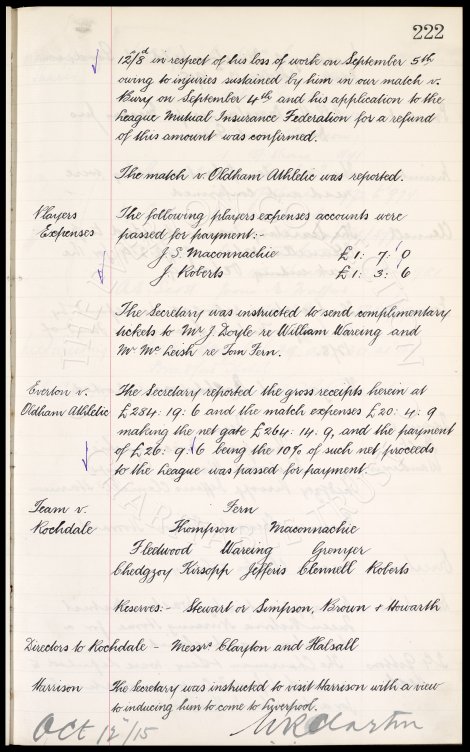 222
12/8d in respect of his loss of work on September 5th
owing to injuries sustained by him in our match v.
Bury on September 4th and his application to the
League Mutual Insurance Federation for a refund
of this amount was confirmed.
The match v. Oldham Athletic was reported.
Players Expenses The following players expenses accounts were
passed for payment:-
J. S. Maconnachie £1: 7: 0
J. Roberts £1: 3: 6
The Secretary was instructed to send complimentary
tickets to Mr J. Doyle re William Wareing and
Mr McLeish re Tom Fern.
Everton v. Oldham Athletic The Secretary reported the gross receipts herein at
£284: 19: 6 and the match expenses £20: 4: 9
making the net gate £264: 14: 9, and the payment
of £26: 9: 6 being the 10% of such net proceeds
to the League was passed for payment.
Team v. Rochdale Fern
Thompson Maconnachie
Fleetwood Wareing Grenyer
Chedgzoy Kirsopp Jefferis Clennell Roberts
Reserves:- Stewart or Simpson, Brown & Howarth
Directors to Rochdale - Messrs Clayton and Halsall
Harrison The Secretary was instructed to visit Harrison with a view
to inducing him to come to Liverpool.
Oct 12/15 W R Clayton